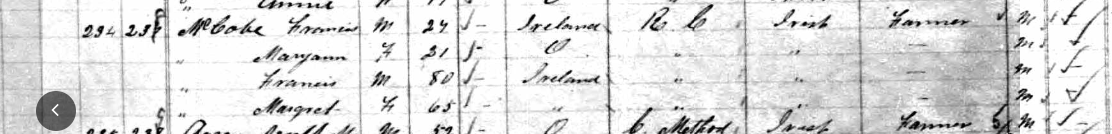 " Annie
234 McCabe Francis M 27 Ireland R. C Irish Farmer M
" Maryann F 21 O " " — M
" Francis M 80 Ireland " " — M
" Margret F 65 " " " — M
M 52 O C. Method Irish Farmer M